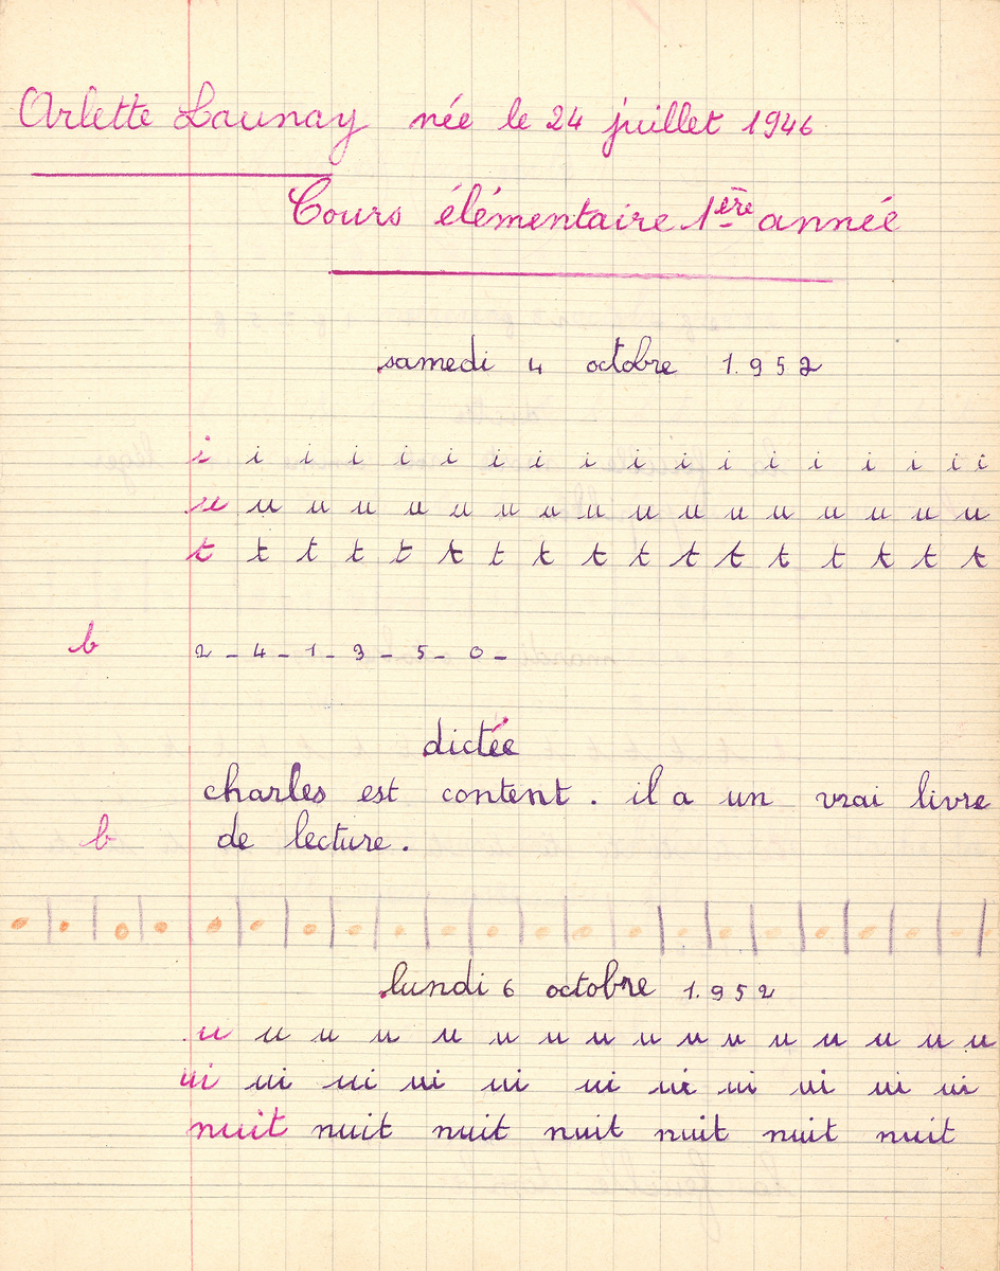 Arlette Launay née le 24 juillet 1946
Cours élémentaire 1ère année
samedi 4 octobre 1.952
i i i i i i i i i i i i i i i i i
u u u u u u u u u u u u u u u u
t t t t t t t t t t t t t t t t t
b 2 - 4 - 1 - 3 - 5 - 0 -
dictée
charles est content. il a un vrai livre
b de lecture.
lundi 6 octobre 1.952
u u u u u u u u u u u u u u u u
ui ui ui ui ui ui ui ui ui ui ui
nuit nuit nuit nuit nuit nuit nuit